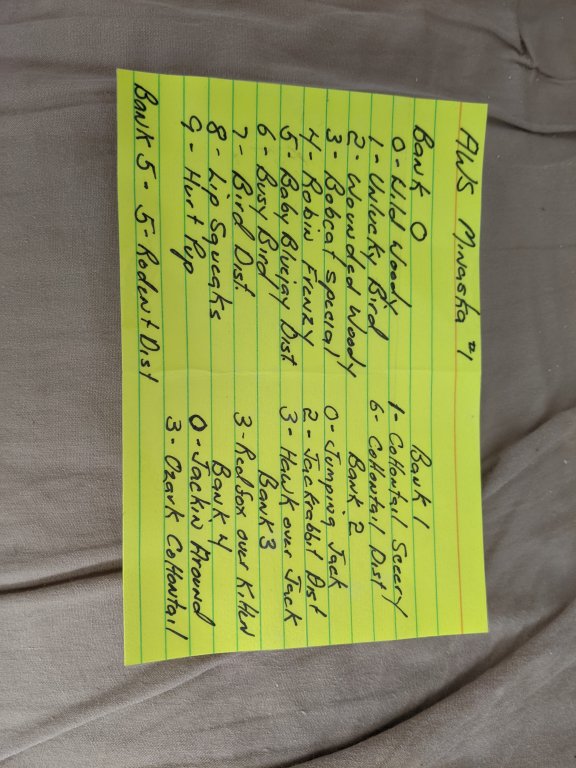 AWS Minaska #1
Bank 0
0- Wild Woody
1- Unlucky Bird
2- Wounded Woody
3- Bobcat special
4- Robin Frenzy
5- Baby Bluejay Dist
6- Busy Bird
7- Bird Dist.
8- Lip Squeaks
9- Hurt Pup
Bank 5- 5- Rodent Dist
Bank 1
1- Cottontail Sccery
6- Cottontail Dist
Bank 2
0- Jumping Jack
2- Jackrabbit Dist
3- Hawk over Jack
Bank 3
3- Redfox over Kitten
Bank 4
0- Jackin Around
3- Ozark Cottontail